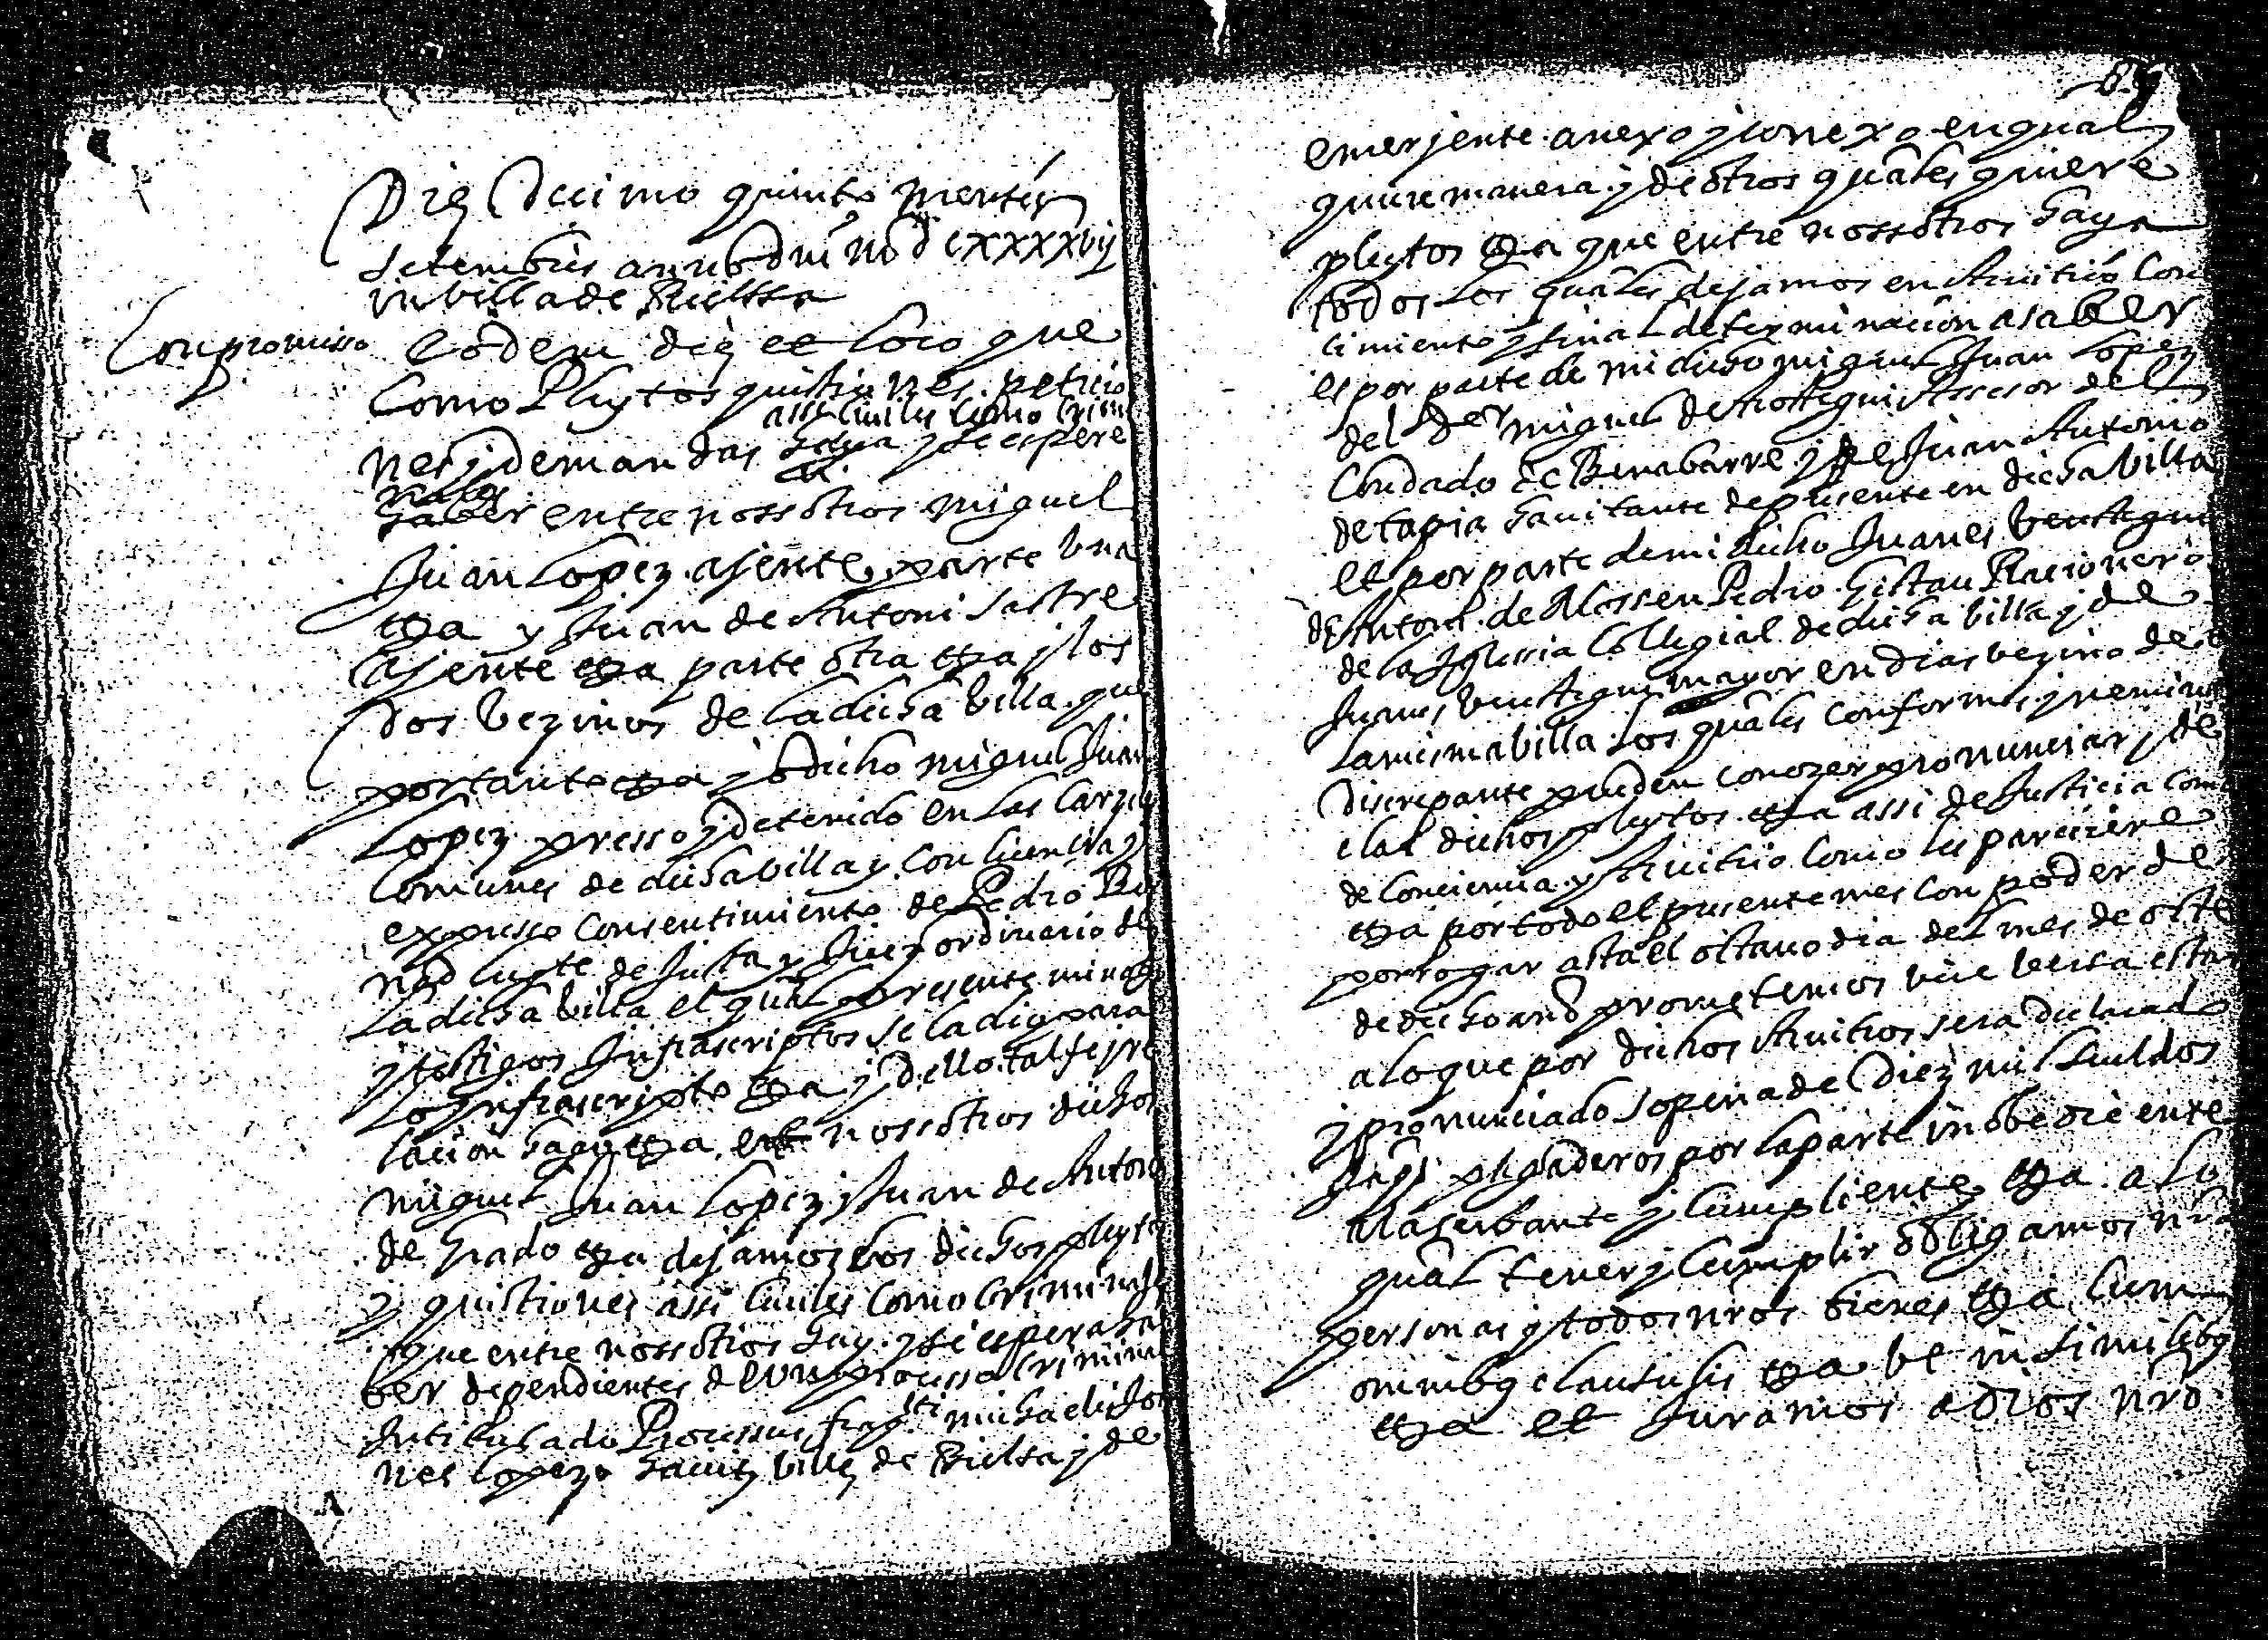 Die Decimo quinto mensis
setembris anno dni MDCXXXXVij
in villa de Bielssa
Compromisso
Eodem die et loco que
Como Pleytos quistiones peticio
assi civiles como crimi
nes y demandas haya y se espere
nales
haber entre nossotros miguel
Juan Lopez ajente parte una
etza y Juan de Antoni sastre
ajente etza parte otra etza y los
dos vezinos de la dicha villa que
por tanto etza yo dicho miguel Juan
Lopez presso y detenido en las Carzeles
Comunes de dicha villa y con licencia y
expresso consentimiento de Pedro
nad lugte de Justa y Juez ordinario de
la dicha villa el qual presente mi noto
y testigos Infrascriptos se la dio para
lo Infrascripto etza y dello tal fe y re
lacion hago etza nossotros dichos
miguel Juan Lopez y Juan de Antoni
de Grado etza dejamos los dichos pleytos
y quistiones assi Civiles como Criminales
que entre nossotros hay y se espera ha
ber dependientes de un processo criminal
Intitulado Processus michaelis Joan
nes Lopez ville de Bielsa y de
89
emerjente anexo y conexo en qual
quiere manera y de otros quales quiere
pleytos etza que entre nossotros haya
todos los quales dejamos en Arvitrio Cono
cimiento y final determinacion a saber
es por parte de mi dicho miguel Juan Lopez
del Dor miguel de Assesor del
Condado de Benabarre y de Juan Antonio
de tapia havitante de presente en dicha villa
et por parte de mi dicho Juanes
de Antoni de Mossen Pedro Gistau Racionero
de la Iglessia Collegial de dicha villa y de
Juanes mayor en dias vezino de
la misma villa los quales conformes y nemine
discrepante pueden conozer pronunciar y de
clar dichos pleytos etza assi de Justicia como
de Conciencia y Arvitrio como les pareciere
etza por todo el presente mes con poder de
porrogar asta el octavo dia del mes de octe
de dicho año prometemos vice versa estar
a lo que por dichos Arvitros sera declarado
y pronunciado so pena de Diez mil sueldos
Jaqs pagaderos por la parte inobediente
a la serbante y cumpliente etza a lo
qual tener y cumplir obligamos nras
personas y todos nros bienes etza cum
omnibus clausulis etza ut in similibus
etza et Juramos a Dios nro